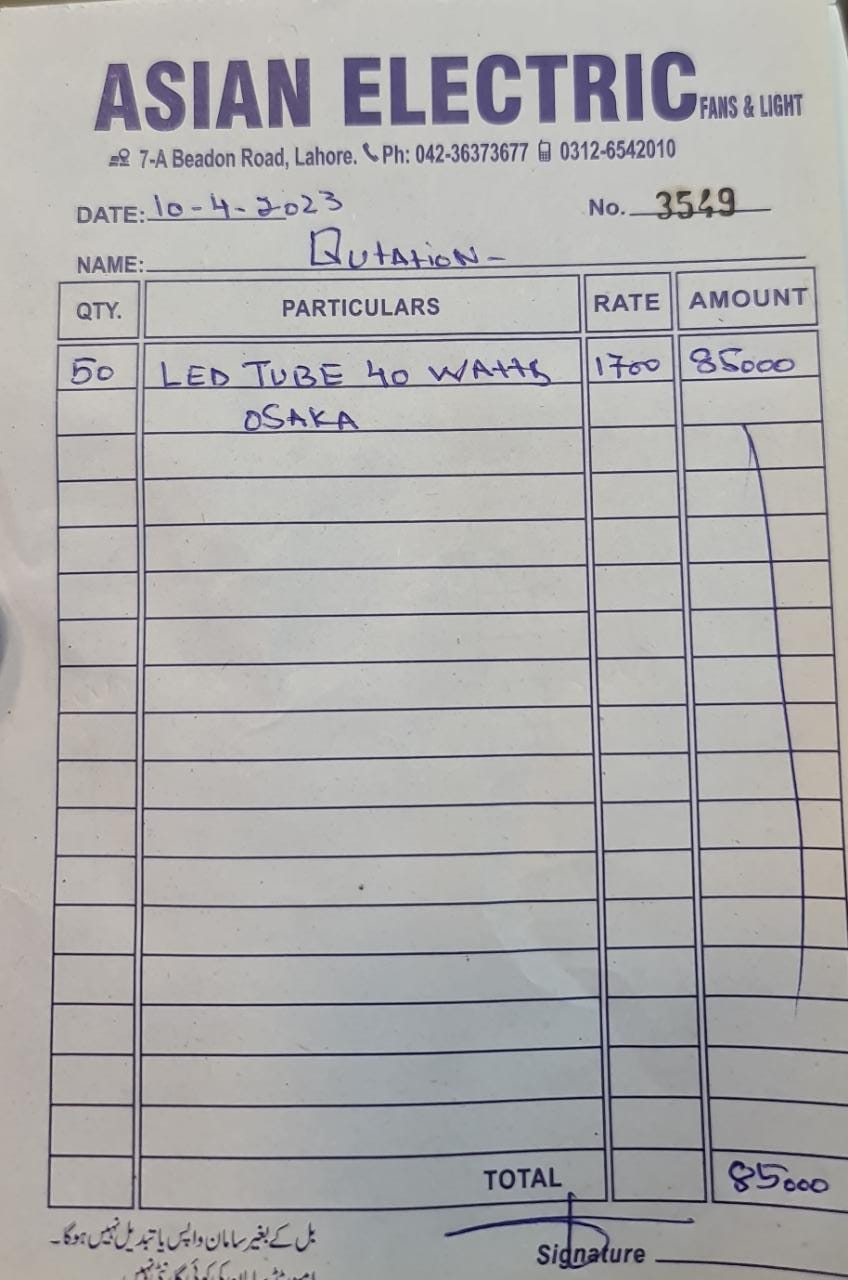 ASIAN ELECTRIC FANS & LIGHT
7-A Beadon Road, Lahore. Ph: 042-36373677 0312-6542010
DATE: 10-4-2023 No. 3549
NAME: QUtAtiON-
QTY. PARTICULARS RATE AMOUNT
50 LED TUBE 40 WAttS 1700 85000
OSAKA
TOTAL 85000
بل کے بغیر سامان واپس یا تبدیل نہیں ہوگا۔
Signature